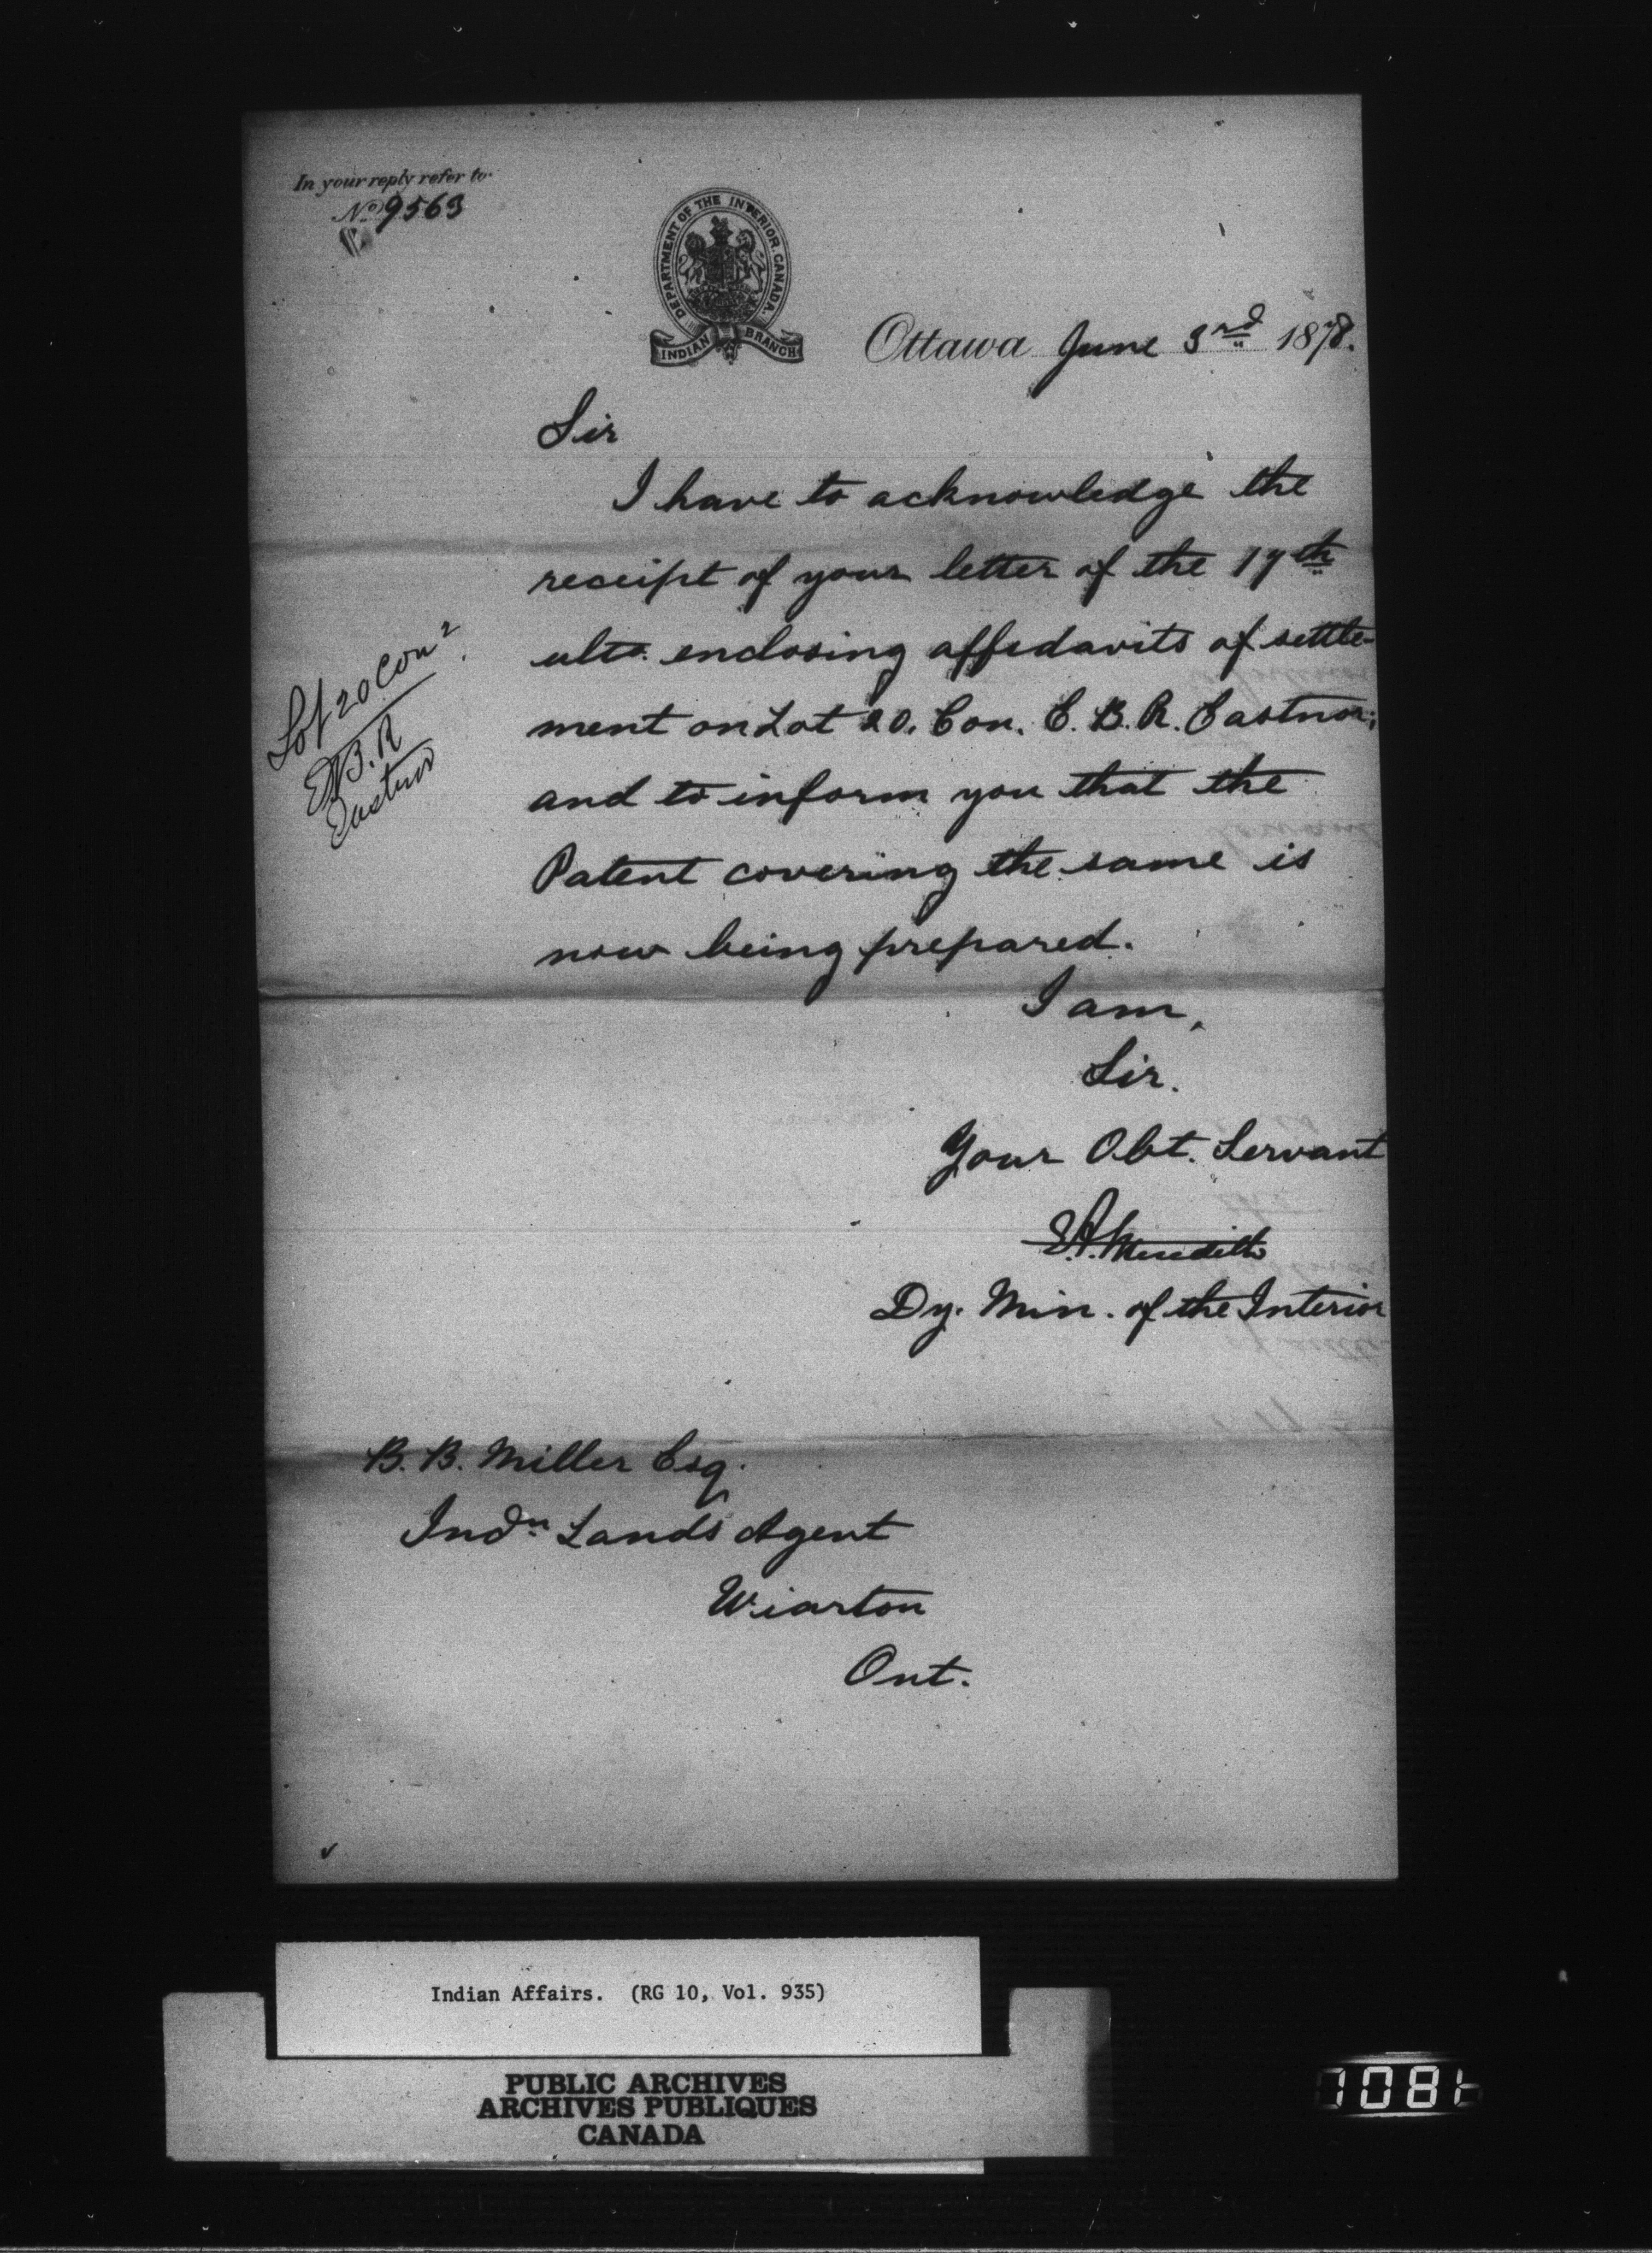 In your reply refer to
No 9563
DEPARTMENT OF THE INTERIOR. CANADA.
INDIAN BRANCH
Ottawa June 3rd 1878.
Sir
I have to acknowledge the
receipt of your letter of the 17th
ulto. enclosing affidavits of settle-
ment on Lot 20. Con. E. B. R. Eastnor;
and to inform you that the
Patent covering the same is
now being prepared.
Lot 20 Con 2
E B. R
Eastnor
I am,
Sir.
Your Obt. Servant
E.A. Meredith
Dy. Min. of the Interior
B. B. Miller Esq.
Indn Lands Agent
Wiarton
Ont.
Indian Affairs. (RG 10, Vol. 935)
PUBLIC ARCHIVES
ARCHIVES PUBLIQUES
CANADA